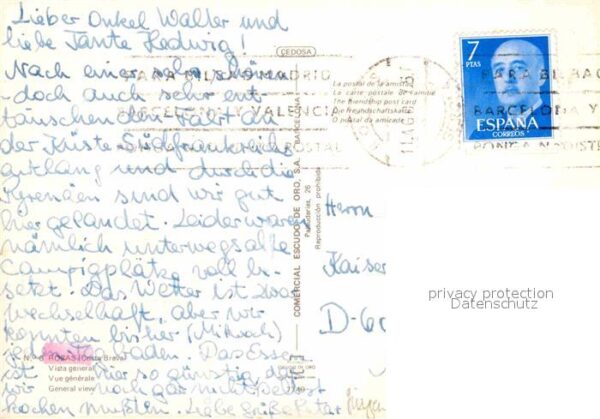 Lieber Onkel Walter und
liebe Tante Hedwig!
Nach einer sehr schönen
doch auch sehr ent-
täuschenden Fahrt an
der Küste Südfrankreichs
entlang und durch die
Pyrenäen sind wir gut
hier gelandet. Leider waren
nämlich unterwegs alle
Campigplätze voll be-
setzt. Das Wetter ist zwar
wechselhaft, aber wir
konnten bisher (Mittwoch)
jeden baden. Das Essen
ist hier so günstig, daß
wir noch gar nicht selbst
kochen mußten. Liebe Grüße
CEDOSA
La postal de la amistad
La carte postale de l'amitié
The friendship post card
Die Freundschaftskarte
O postal da amizade
PARA BILBAO MADRID
BARCELONA Y VALENCIA
POSTAL
7
PTAS
ESPAÑA
CORREOS
PARA BILBAO
BARCELONA Y
COMERCIAL ESCUDO DE ORO, S.A.
BARCELONA
26
Reproducción prohibida
Herrn
Kaiser
D-60
privacy protection
Datenschutz
N.º 8 ROSAS (Costa Brava)
Vista general
Vue générale
General view